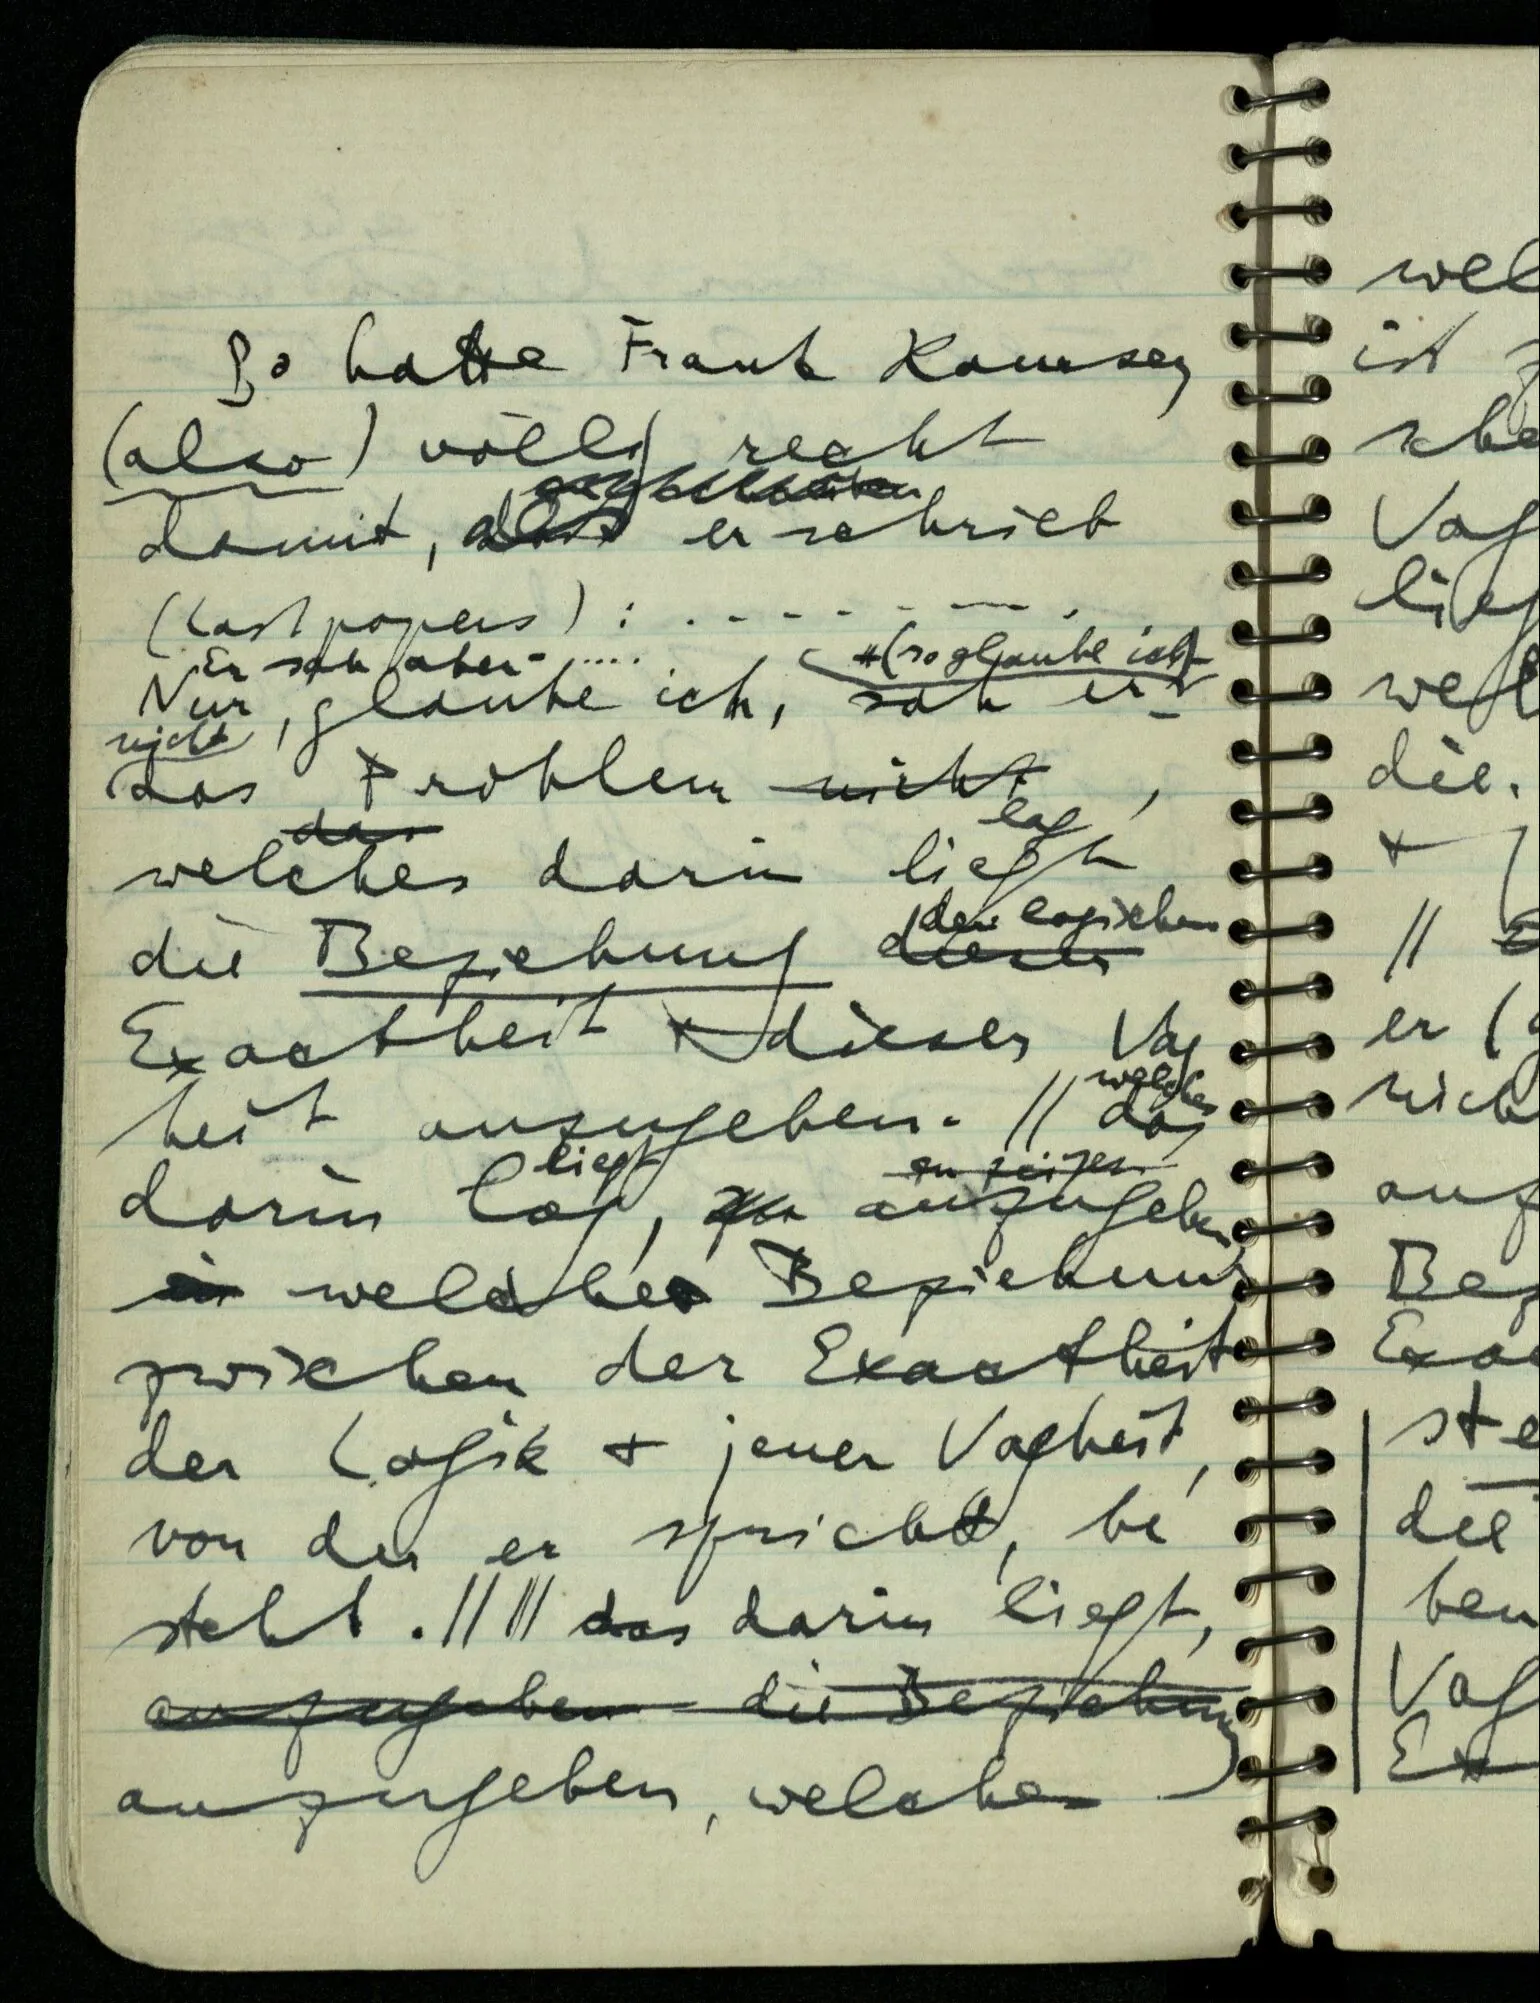 So hatte Frank Ramsey
(also) völlig recht
damit, er schrieb
(Last papers) : . - - - - - - .
Er sah aber - ....  (so glaube ich)
Nur, glaube ich, sah er
nicht
das Problem nicht ,
das lag
welches darin liegt
der logischen
die Beziehung dieser
Exactheit + dieser Vag
heit anzugeben. // das
welches
liegt zu zeigen
darin lag, zu anzugeben
in welcher Beziehung
zwischen der Exactheit
der Logik + jener Vagheit,
von der er spricht, be
steht. // // das darin liegt,
anzugeben die Beziehung
anzugeben, welche
wel
ist
sche
Vag
lieg
wel
die.
+
//
er (
nich
auf
Bez
Exac
ste
die
ben
Vag
Ex